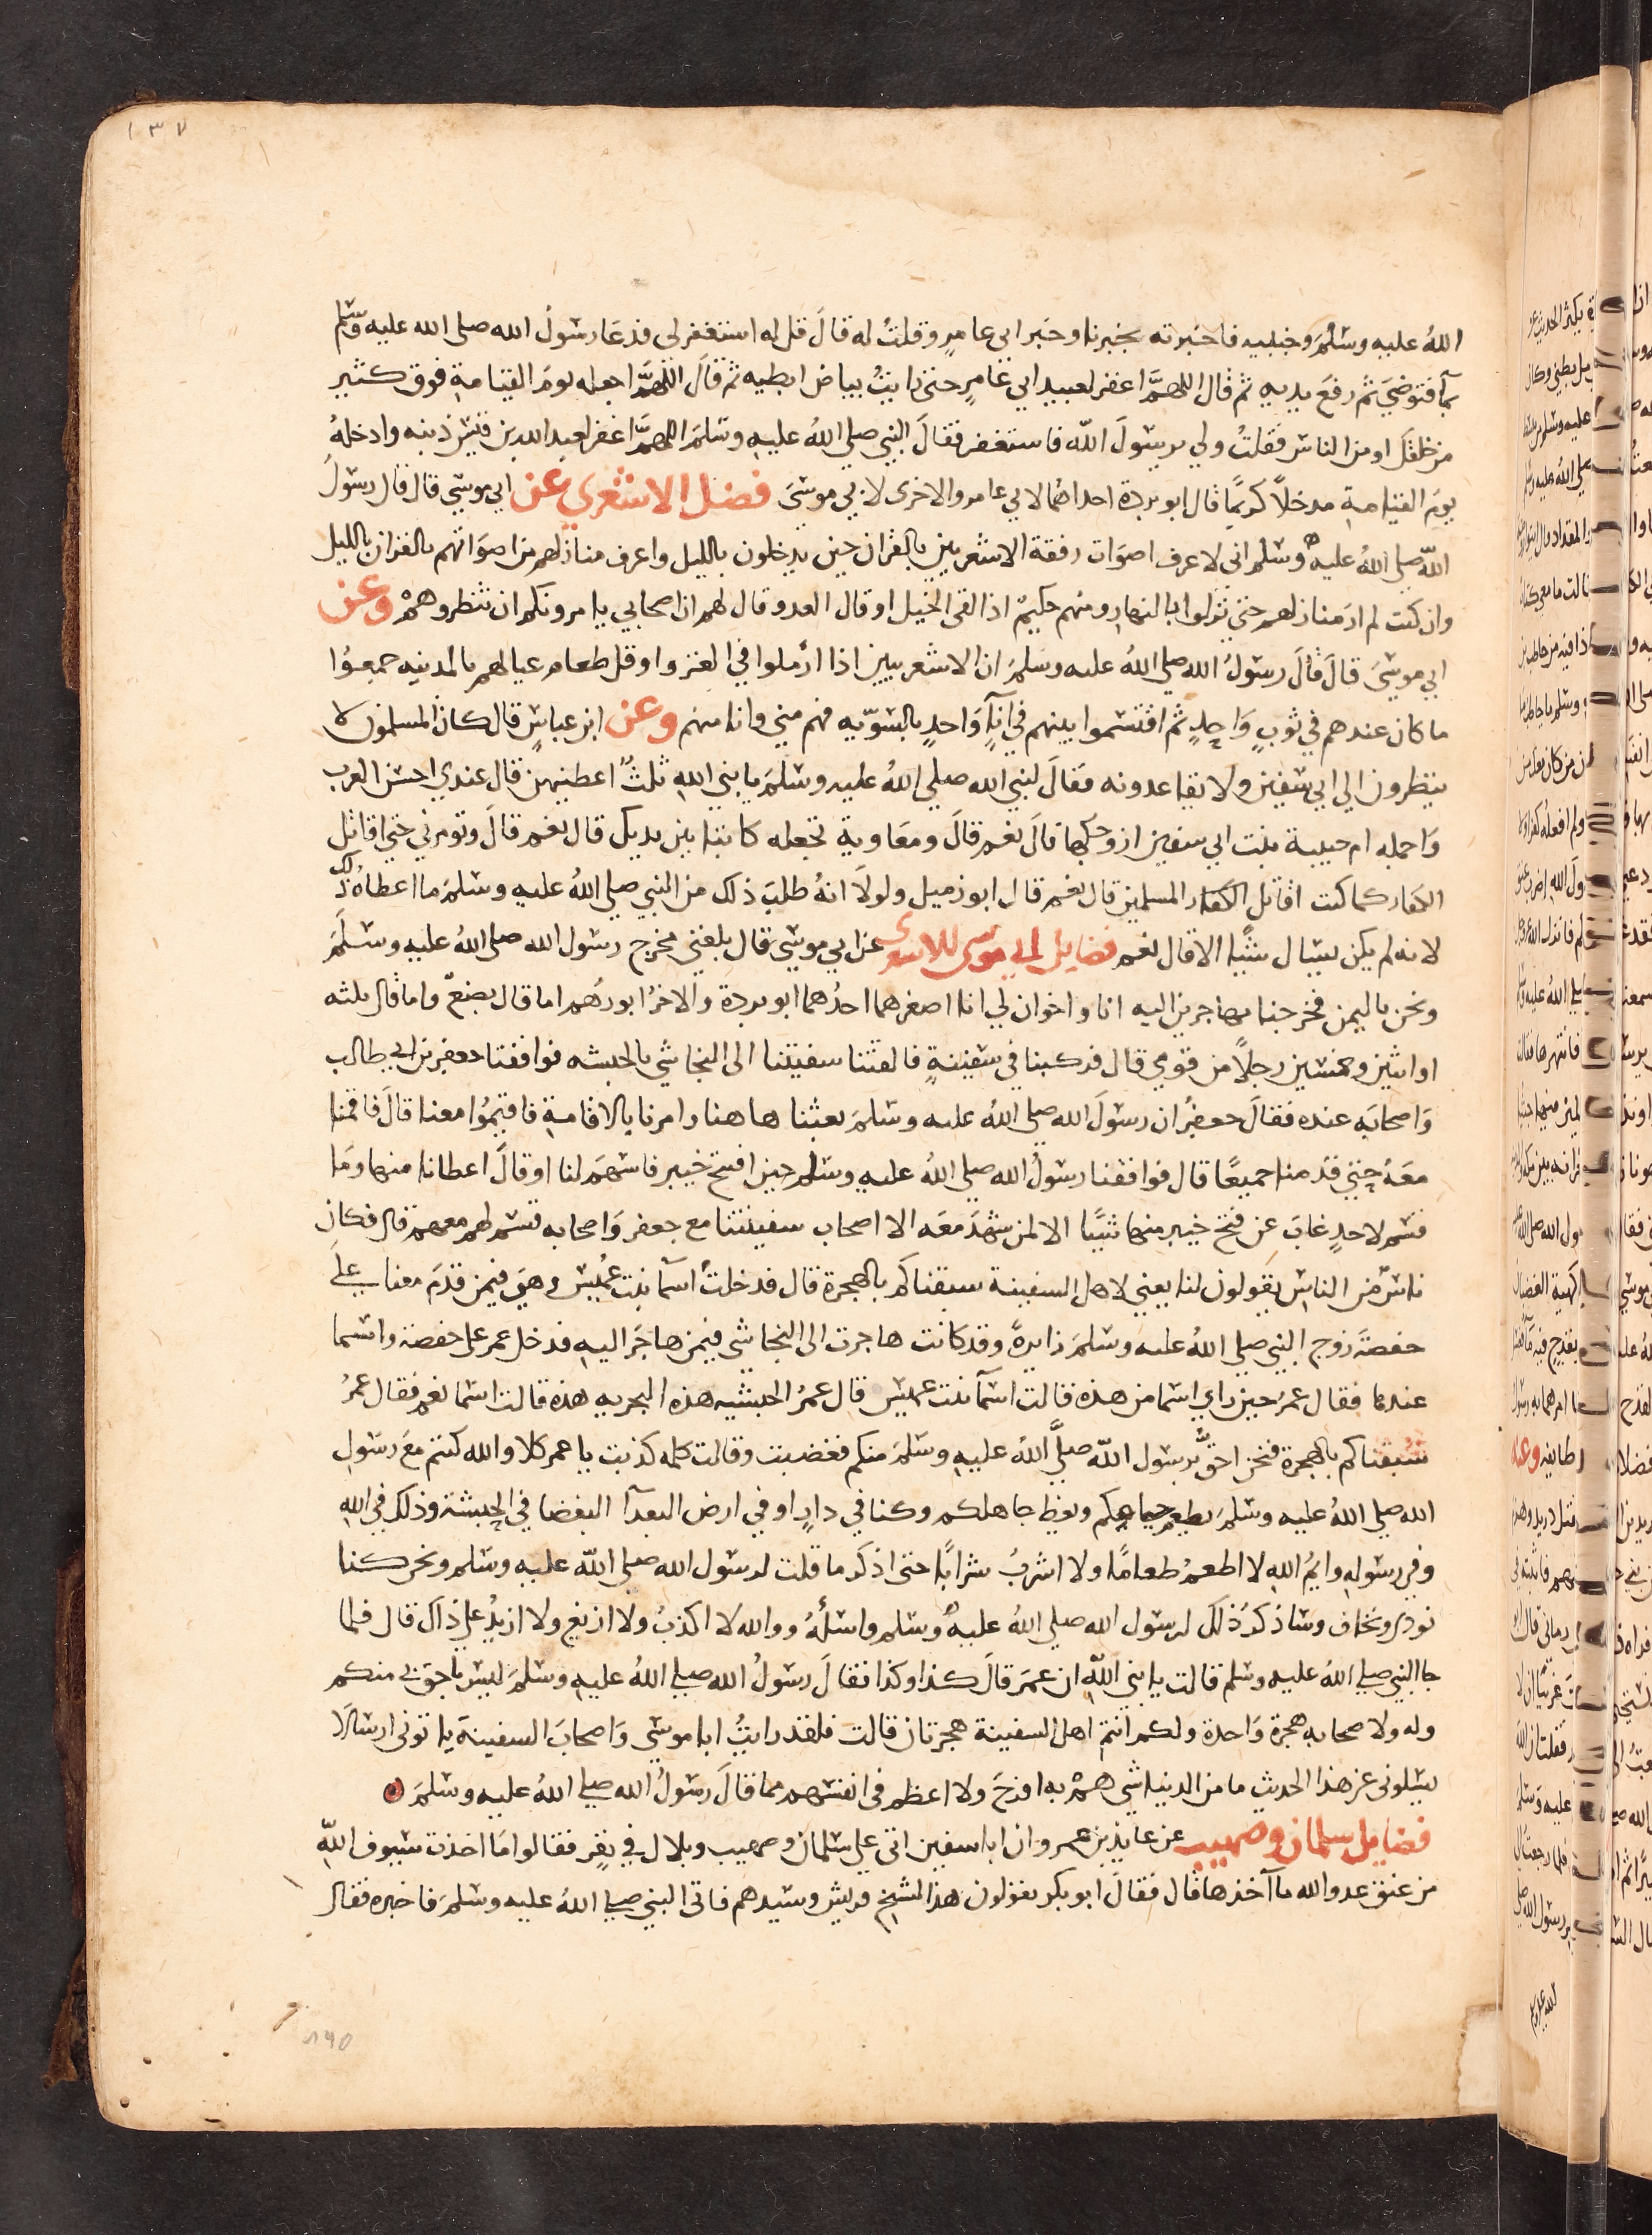 ١٣٧
الله عليه وسلم وجنبيه فاخبرته بخبرنا وخبر ابي عامر وقلت له قال قل له استغفر لي فدعا رسول الله صلى الله عليه وسلم
بما فتوضئ ثم رفع يديه ثم قال اللهم اغفر لعبيد ابي عامر حتى رايت بياض ابطيه ثم قال اللهم اجعله يوم القيامة فوق كثير
من خلقك او من الناس فقلت ولي يرسول الله فاستغفر فقال النبي صلى الله عليه وسلم اللهم اغفر لعبد الله بن قيس ذنبه وادخله
يوم القيامة مدخلا كريما قال ابو بردة احداهما لابي عامر والاخرى لابي موسى فضل الاشعري عن ابي موسى قال قال رسول
الله صلى الله عليه وسلم اني لاعرف اصوات رفقة الاشعريين بالقران حين يدخلون بالليل واعرف منازلهم من اصواتهم بالقران بالليل
وان كنت لم ار منازلهم حتى نزلوا بالنهار ومنهم حكيم اذا لقي الخيل او قال العدو قال لهم ان اصحابي يامرونكم ان تنتظروهم وعن
ابي موسى قال قال رسول الله صلى الله عليه وسلم ان الاشعريين اذا ارملوا في الغزو او قل طعام عيالهم بالمدينه جمعوا
ما كان عندهم في ثوب واحد ثم اقتسموا بينهم في اناء واحد بالسويه فهم مني وانا منهم وعن ابن عباس قال كان المسلمون لا
ينظرون الى ابي سفين ولا يقاعدونه فقال لنبي الله صلى الله عليه وسلم يا نبي الله ثلث اعطنيهن قال عندي احسن العرب
واجمله ام حبيبة بنت ابي سفين ازوجكها قال نعم قال ومعاوية تجعله كاتبا بين يديك قال نعم قال وتومرني حتى اقاتل
الكفار كما كنت اقاتل المسلمين قال نعم قال ابو زميل ولولا انه طلب ذلك من النبي صلى الله عليه وسلم ما اعطاه ذلك
لانه لم يكن يسال شيئا الا قال نعم فضايل ابي موسى الاشعري عن ابي موسى قال بلغني مخرج رسول الله صلى الله عليه وسلم
ونحن باليمن فخرجنا مهاجرين اليه انا واخوان لي انا اصغرهما احدهما ابو بردة والاخر ابو رهم اما قال بضع واما قال ثلثه
او اثنين وخمسين رجلا من قومي قال فركبنا في سفينة فالقتنا سفينتنا الى النجاشي بالحبشه فوافقنا جعفر بن ابي طالب
واصحابه عنده فقال جعفر ان رسول الله صلى الله عليه وسلم بعثنا هاهنا وامرنا بالاقامة فاقيموا معنا قال فاقمنا
معه حتى قدمنا جميعا قال فوافقنا رسول الله صلى الله عليه وسلم حين افتتح خيبر فاسهم لنا او قال اعطانا منها وما
قسم لاحد غاب عن فتح خيبر منها شيا الا لمن شهد معه الا اصحاب سفينتنا مع جعفر واصحابه قسم لهم معهم قال فكان
ناس من الناس يقولون لنا يعني لاهل السفينة سبقناكم بالهجرة قال فدخلت اسما بنت عميس وهي فيمن قدم معنا على
حفصة زوج النبي صلى الله عليه وسلم زايرة وقد كانت هاجرت الى النجاشي فيمن هاجر اليه فدخل عمر على حفصة واسما
عندها فقال عمر حين راي اسما من هذه قالت اسما بنت عميس قال عمر الحبشيه هذه البحريه هذه قالت اسما نعم فقال عمر
سبقناكم بالهجرة فنحن احق برسول الله صلى الله عليه وسلم منكم فغضبت وقالت كلمه كذبت يا عمر كلا والله كنتم مع رسول
الله صلى الله عليه وسلم يطعم جايعكم ويعظ جاهلكم وكنا في دار او في ارض البعدآ البغضا في الحبشة وذلك في الله
وفي رسوله وايم الله لا اطعم طعاما ولا اشرب شرابا حتى اذكر ما قلت لرسول الله صلى الله عليه وسلم ونحن كنا
نوذى ونخاف وساذكر ذلك لرسول الله صلى الله عليه وسلم واسئله ووالله لا اكذب ولا ازيغ ولا ازيد على ذاك قال فلما
جا النبي صلى الله عليه وسلم قالت يا نبي الله ان عمر قال كذا وكذا فقال رسول الله صلى الله عليه وسلم ليس باحق بي منكم
وله ولاصحابه هجرة واحدة ولكم انتم اهل السفينة هجرتان قالت فلقد رايت ابا موسى واصحاب السفينة ياتوني ارسالا
يسلوني عن هذا الحديث ما من الدنيا شي هم به افرح ولا اعظم في انفسهم مما قال رسول الله صلى الله عليه وسلم
فضايل سلمان وصهيب عن عايذ بن عمرو ان ابا سفين اتى على سلمان وصهيب وبلال في نفر فقالوا ما اخذت سيوف الله
من عنق عدو الله مآخذها قال فقال ابو بكر تقولون هذا لشيخ قريش وسيدهم فاتى النبي صلى الله عليه وسلم فاخبره فقال